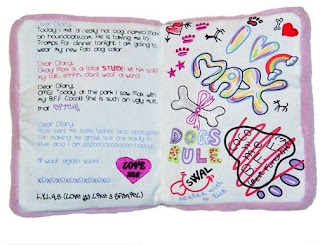 Dear Diary,
Today I met a really hot dog named Max
on hounddate.com. He is taking me to
Tramps for dinner tonight. I am going to
wear my new fab dog collar.
Dear Diary,
Okay Max is a total STUD! I let him sniff
my tail...shhhh, don't woof a word!
Dear Diary,
OMG! Today at the park I saw Max with
my B.F.F Coco!!! She is such an ugly mutt.
Dear Diary,
Max sent me some bones and apologized
for making me growl. We are madly in
love and I am happy!
I'll woof again soon!
xoxoxoxoxoxoxo
L.Y.L.A.S (Love ya Like a Spaniel)
LOVE
me
I
MAX
DOGS
RULE
SWAL
sealed with
a lick
COCO
Best Furiends